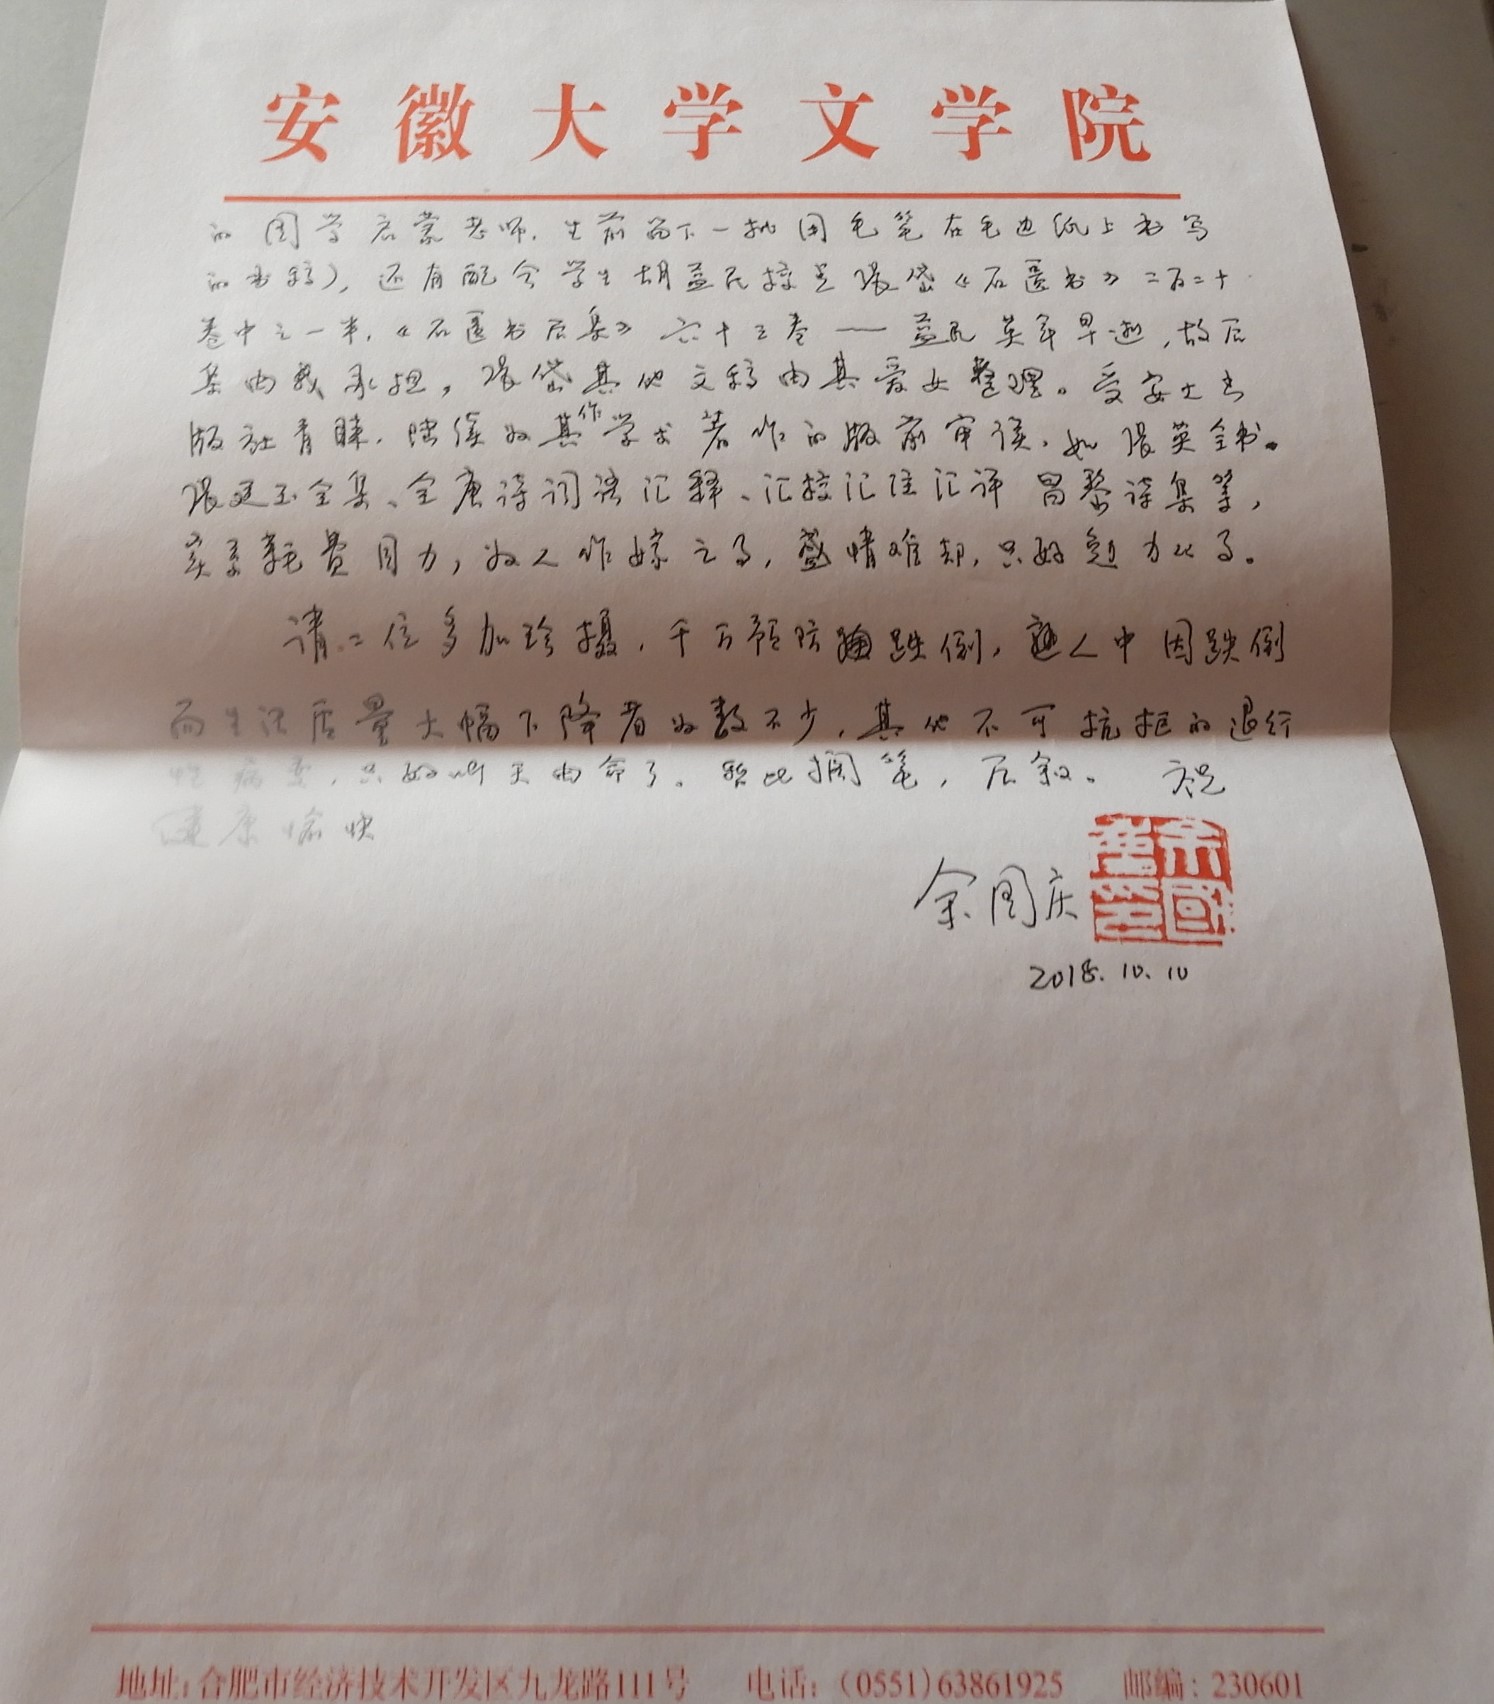 安徽大学文学院
的国学启蒙老师，生前留下一批用毛笔在毛边纸上书写
的书稿），还有配合学生胡益民校点张岱《石匮书》二百二十
卷中之一半，《石匮书后集》六十三卷——益民英年早逝，故后
集由我承担，张岱其他文稿由其爱女整理。受安大出
版社青睐，陆续为其作学术著作的版前审读，如张英全书。
张廷玉全集、全唐诗词语汇释、汇校汇注汇评昌黎诗集等，
实系耗费目力，为人作嫁之事，盛情难却，只好勉力从事。
请二位多加珍摄，千万预防跌倒，熟人中因跌倒
而生活质量大幅下降者为数不少，其他不可抗拒的退行
性病变，只好听天由命了。暂此搁笔，后叙。 祝
健康愉快
余国庆
2018.10.10
地址：合肥市经济技术开发区九龙路111号 电话：（0551)63861925 邮编：230601